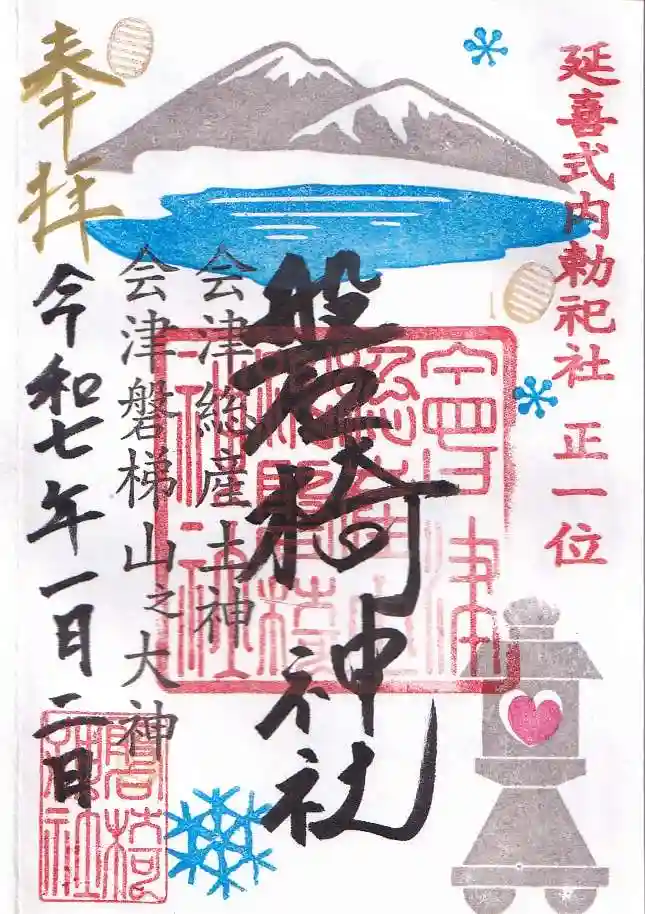 延喜式内勅祀社 正一位
磐椅神社
会津総産土神
会津磐梯山之大神
奉拝
令和七年一月二日
磐椅神社